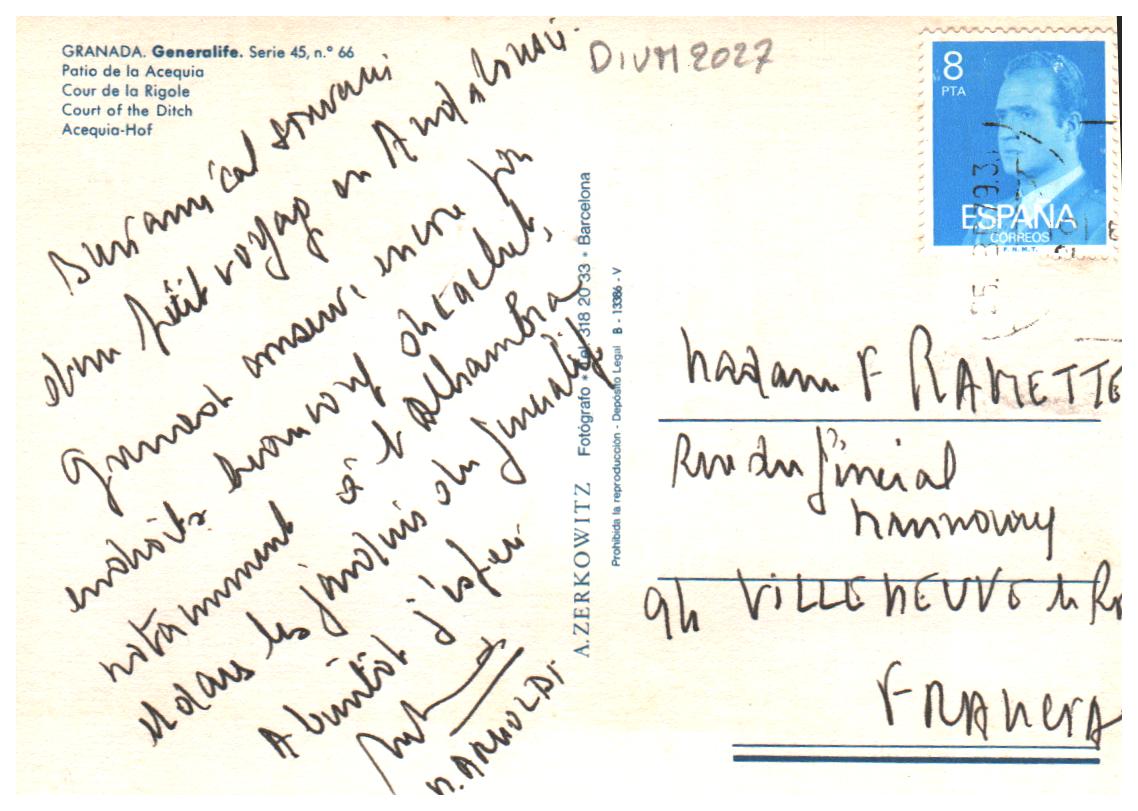 GRANADA. Generalife. Serie 45, n.º 66
Patio de la Acequia
Cour de la Rigole
Court of the Ditch
Acequia-Hof
DIVM 2027
8
PTA
ESPAÑA
CORREOS
F.N.M.T.
Bien amical souvenir
d'un petit voyage en Andalousie.
Grenade conserve encore
endroits beaucoup
notamment à l'Alhambra
et dans les jardins du Generalife
A bientôt j'espère
P. ARNOLDI
A. ZERKOWITZ Fotógrafo • Tel. 318 20 33 • Barcelona
Prohibida la reproducción - Depósito Legal B - 13386 - V
Madame F RAMETTE
Rue du Général
Monnoury
VILLENEUVE
FRANCIA